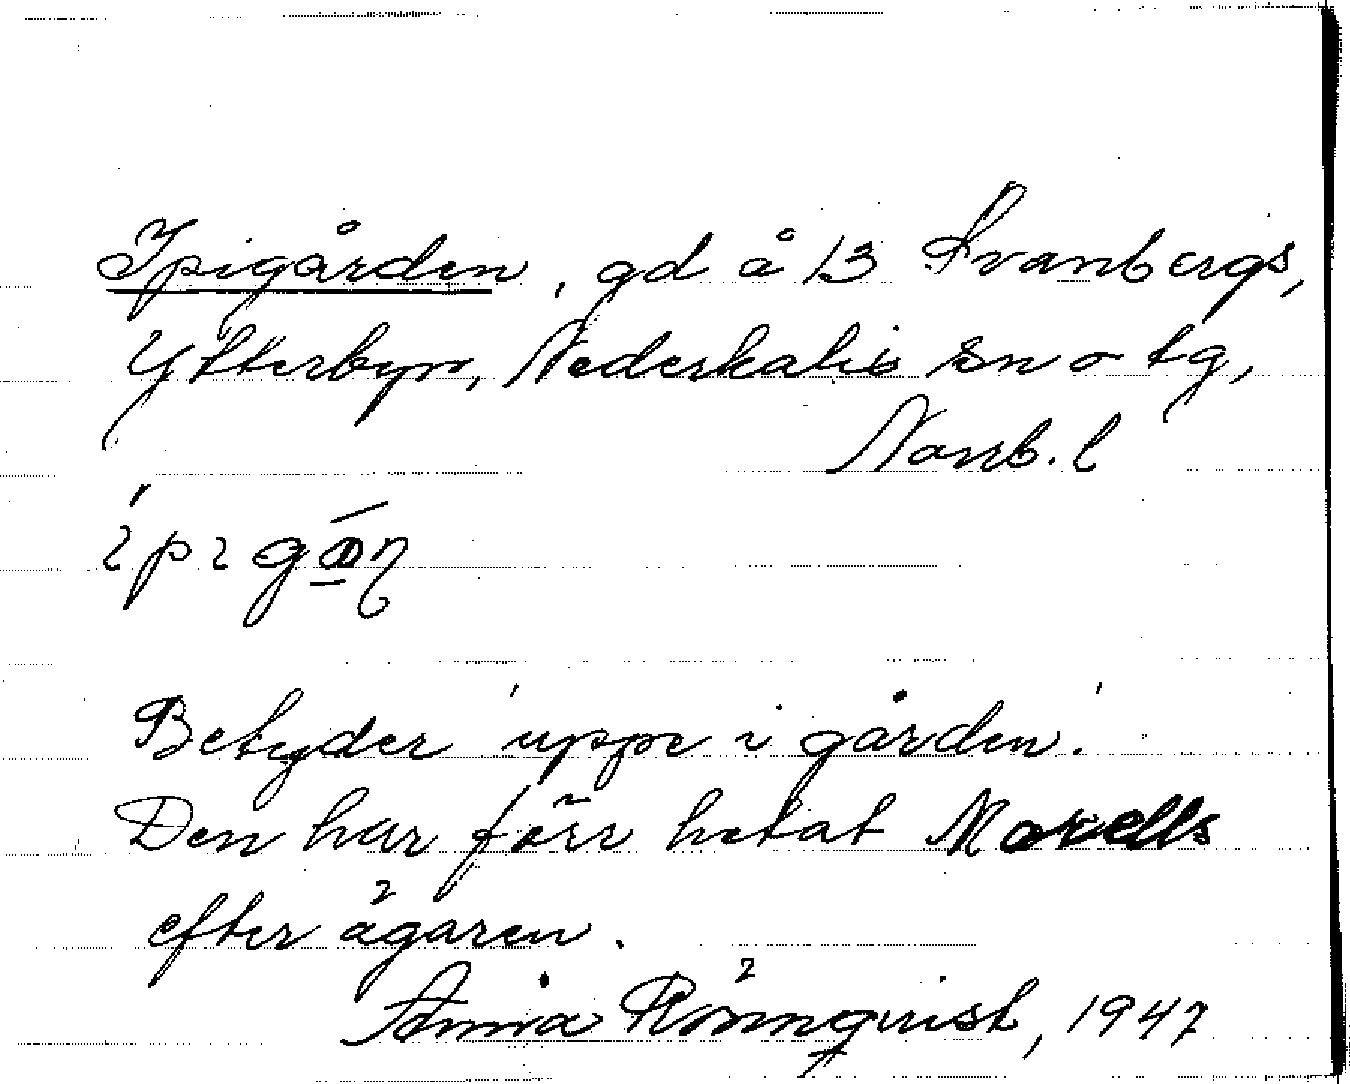 Ipigården, gd å 13 Svanbergs,
Ytterbyn, Nederkalix sn o tg,
Norrb. l
Betyder 'uppe i gården'.
Den har förr hetat Morells
efter ägaren.
Anna Rönnqvist, 1947